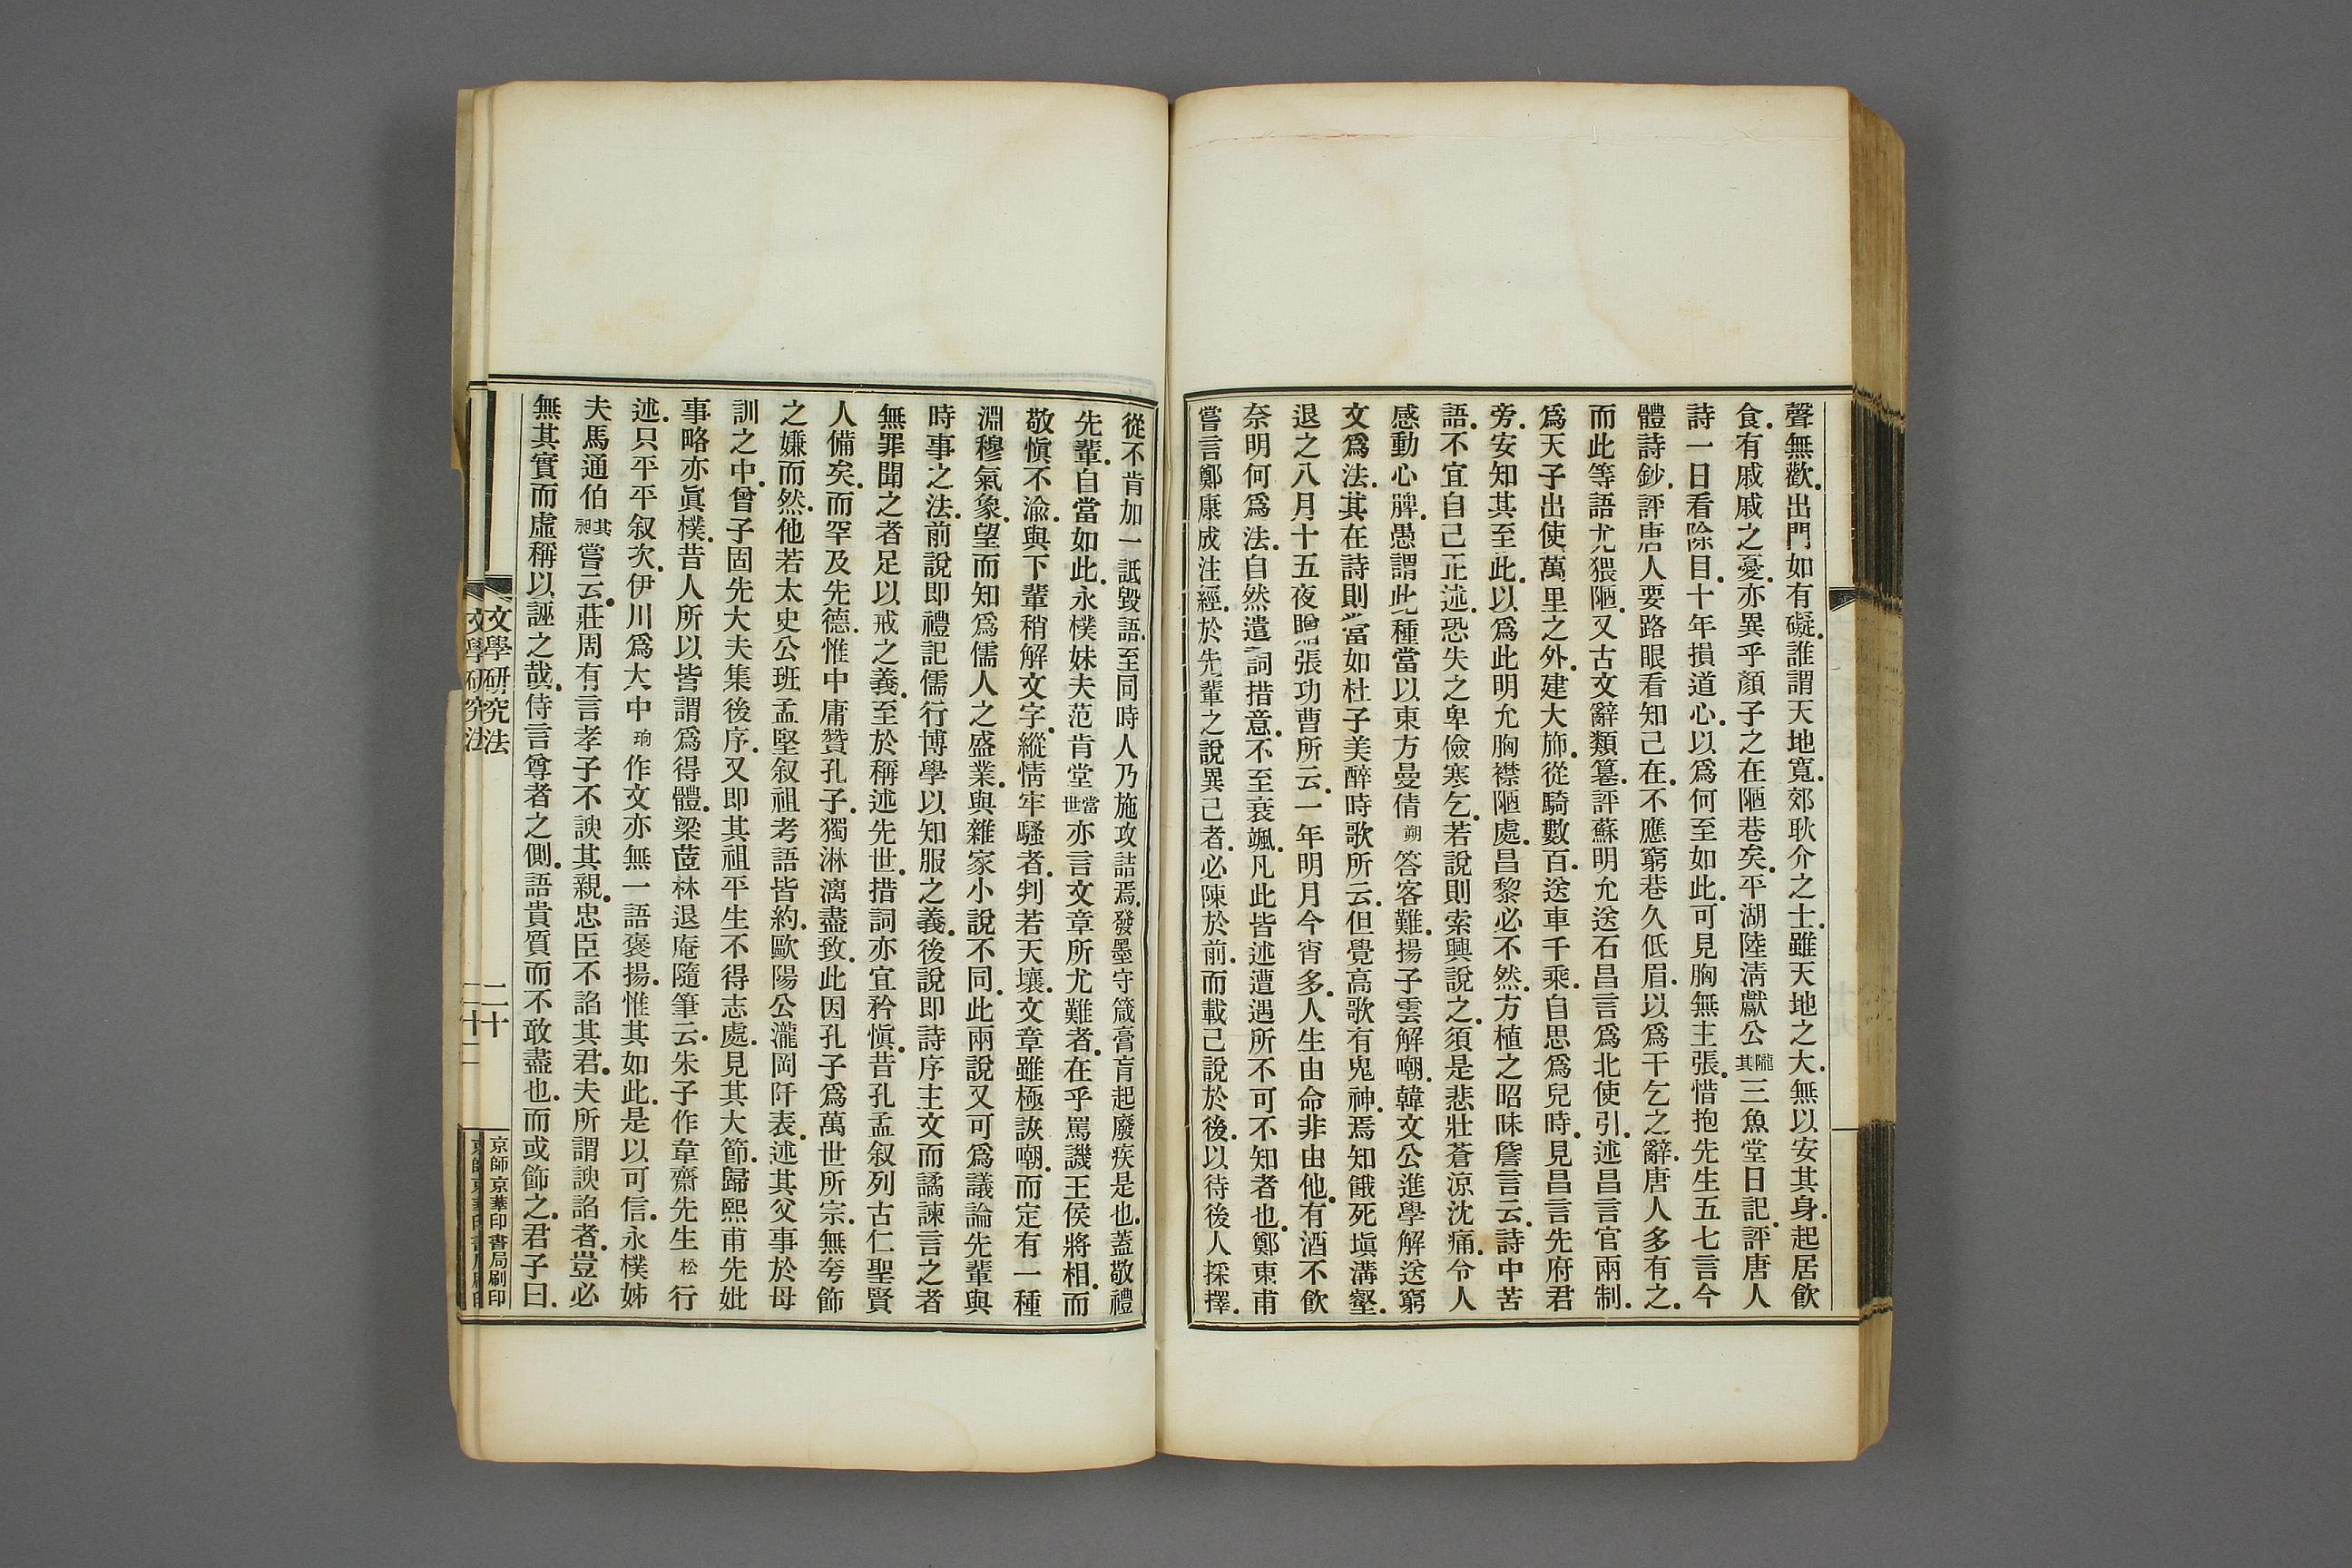 聲無歡.出門如有礙.誰謂天地寬.郊耿介之士.雖天地之大.無以安其身.起居飲
食.有戚戚之憂.亦異乎顏子之在陋巷矣.平湖陸清獻公隴其三魚堂日記.評唐人
詩一日看除目.十年損道心.以爲何至如此.可見胸無主張.惜抱先生五七言今
體詩鈔.評唐人要路眼看知己在.不應窮巷久低眉.以爲干乞之辭.唐人多有之.
而此等語尤猥陋.又古文辭類篹.評蘇明允送石昌言爲北使引.述昌言官兩制.
爲天子出使萬里之外.建大斾.從騎數百.送車千乘.自思爲兒時.見昌言先府君
旁.安知其至此.以爲此明允胸襟陋處.昌黎必不然.方植之昭昧詹言云.詩中苦
語.不宜自己正述.恐失之卑儉寒乞.若說則索興說之.須是悲壯蒼凉沈痛.令人
感動心脾.愚謂此種當以東方曼倩朔答客難.揚子雲解嘲.韓文公進學解送窮
文爲法.其在詩則當如杜子美醉時歌所云.但覺高歌有鬼神.焉知餓死塡溝壑.
退之八月十五夜贈張功曹所云.一年明月今宵多.人生由命非由他.有酒不飲
奈明何爲法.自然遣詞措意.不至衰颯.凡此皆述遭遇所不可不知者也.鄭東甫
嘗言鄭康成注經.於先輩之說異己者.必陳於前.而載己說於後.以待後人採擇.
從不肯加一詆毀語.至同時人乃施攻詰焉.發墨守箴膏肓起廢疾是也.蓋敬禮
先輩.自當如此.永樸妹夫范肯堂當世亦言文章所尤難者.在乎罵譏王侯將相.而
敬愼不渝.與下輩稍解文字.縱情牢騷者.判若天壤.文章雖極詼嘲.而定有一種
淵穆氣象.望而知爲儒人之盛業.與雜家小說不同.此兩說又可爲議論先輩與
時事之法.前說即禮記儒行博學以知服之義.後說即詩序主文而譎諫言之者
無罪聞之者足以戒之義.至於稱述先世.措詞亦宜矜愼.昔孔孟叙列古仁聖賢
人備矣.而罕及先德.惟中庸贊孔子.獨淋漓盡致.此因孔子爲萬世所宗.無夸飾
之嫌而然.他若太史公班孟堅叙祖考語皆約.歐陽公瀧岡阡表.述其父事於母
訓之中.曾子固先大夫集後序.又即其祖平生不得志處.見其大節.歸熙甫先妣
事略亦眞樸.昔人所以皆謂爲得體.梁茝林退庵隨筆云.朱子作韋齋先生松行
述.只平平叙次.伊川爲大中珦作文亦無一語褒揚.惟其如此.是以可信.永樸姊
夫馬通伯其昶嘗云.莊周有言孝子不諛其親.忠臣不諂其君.夫所謂諛諂者.豈必
無其實而虛稱以誣之哉.侍言尊者之側.語貴質而不敢盡也.而或飾之.君子曰.
文學研究法
二十
京師京華印書局刷印
文學研究法
二十一